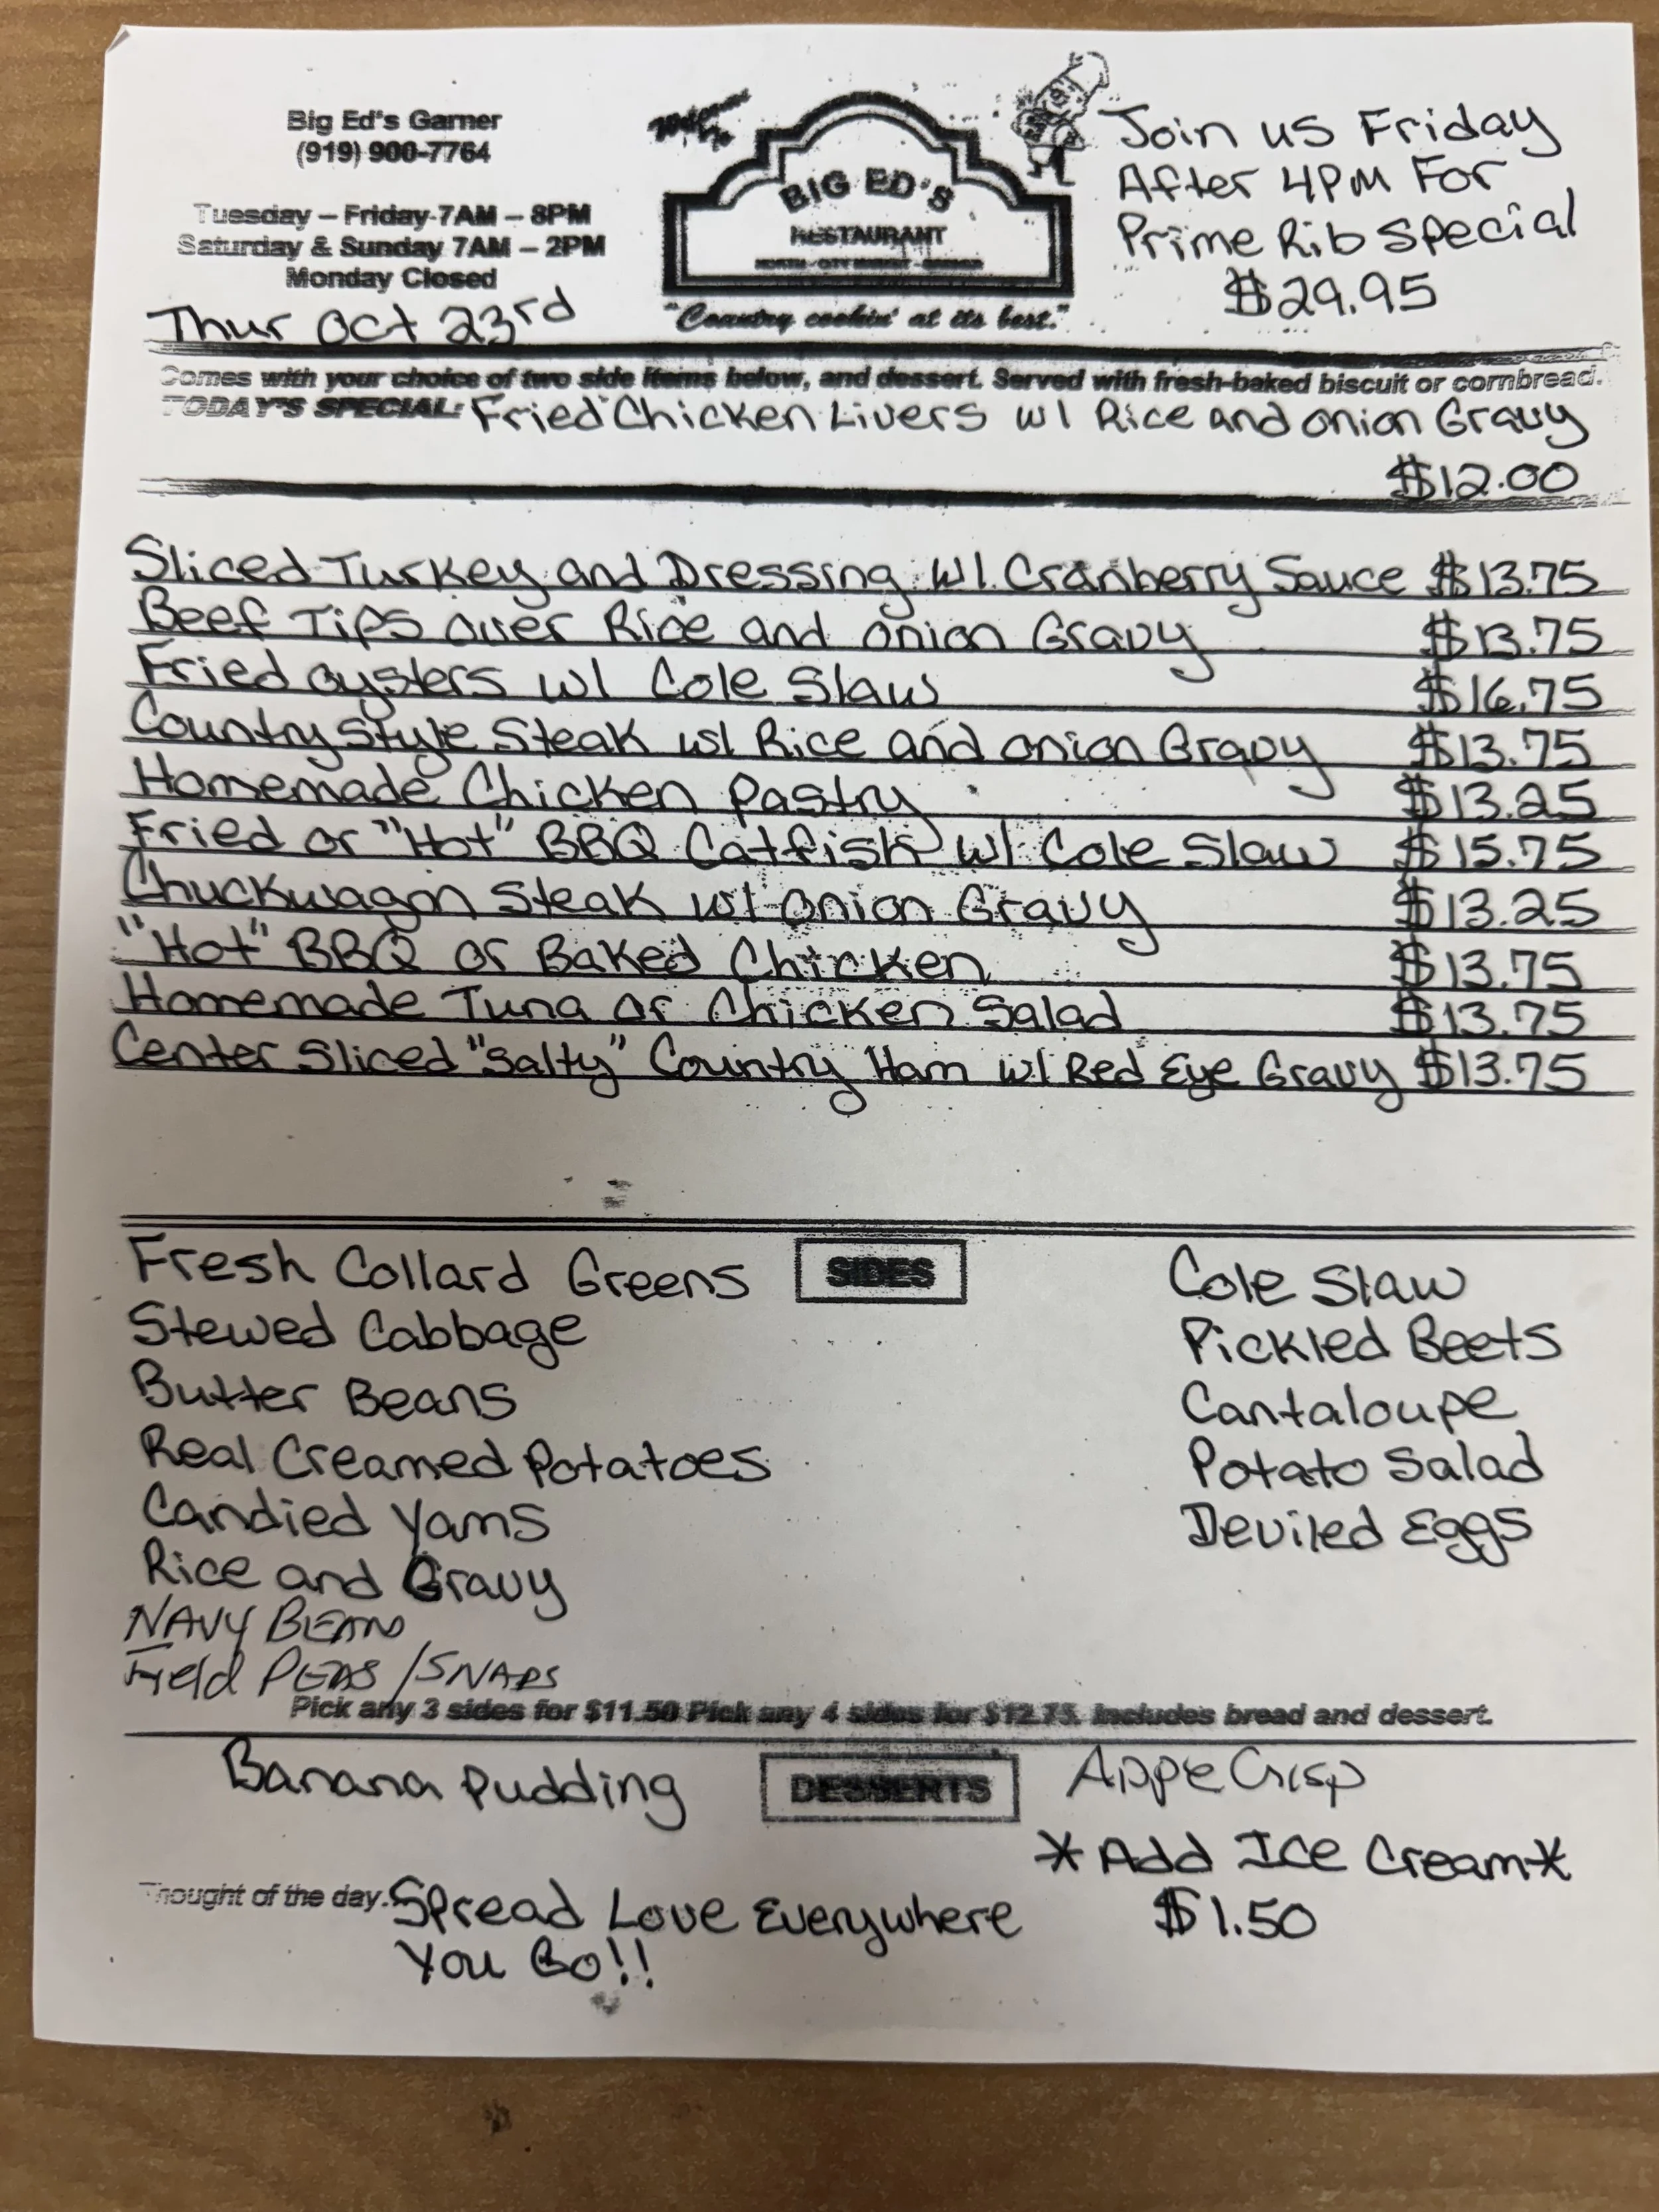 Big Ed's Garner
(919) 900-7764
Tuesday – Friday-7AM – 8PM
Saturday & Sunday 7AM – 2PM
Monday Closed
Thur Oct 23rd
Welcome to
BIG ED'S
RESTAURANT
NORTH - CITY MARKET - GARNER
"Country cookin' at its best."
Join us Friday
After 4PM For
Prime Rib Special
$29.95
Comes with your choice of two side items below, and dessert. Served with fresh-baked biscuit or cornbread.
TODAY'S SPECIAL: Fried Chicken Livers w/ Rice and Onion Gravy
$12.00
Sliced Turkey and Dressing w/ Cranberry Sauce $13.75
Beef Tips over Rice and Onion Gravy $13.75
Fried Oysters w/ Cole Slaw $16.75
Country Style Steak w/ Rice and Onion Gravy $13.75
Homemade Chicken Pastry $13.25
Fried or "Hot" BBQ Catfish w/ Cole Slaw $15.75
Chuckwagon Steak w/ Onion Gravy $13.25
"Hot" BBQ or Baked Chicken $13.75
Homemade Tuna or Chicken Salad $13.75
Center Sliced "Salty" Country Ham w/ Red Eye Gravy $13.75
SIDES
Fresh Collard Greens
Stewed Cabbage
Butter Beans
Real Creamed Potatoes
Candied Yams
Rice and Gravy
NAVY BEANS
Field PEAS /SNAPS
Cole Slaw
Pickled Beets
Cantaloupe
Potato Salad
Deviled Eggs
Pick any 3 sides for $11.50 Pick any 4 sides for $12.75. Includes bread and dessert.
DESSERTS
Banana Pudding
Appe Crisp
*Add Ice Cream*
$1.50
Thought of the day: Spread Love Everywhere
You Go!!